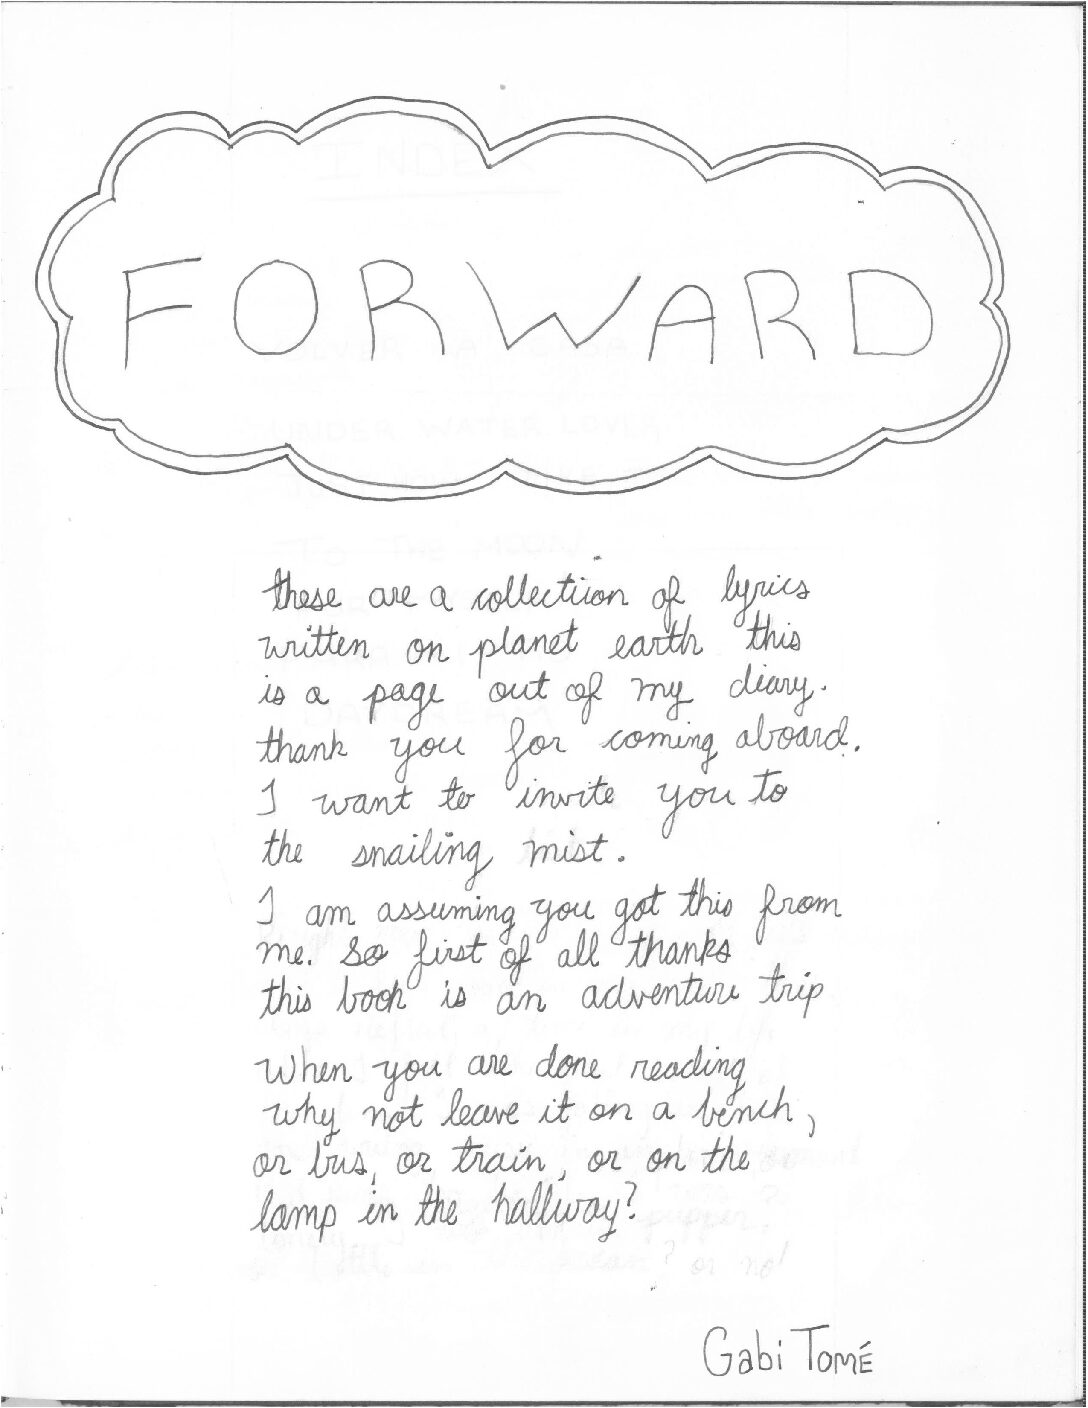 FORWARD
these are a collectiion of lyrics
written on planet earth this
is a page out of my diary.
thank you for coming aboard.
I want to invite you to
the snailing mist.
I am assuming you got this from
me. So first of all thanks
this book is an adventure trip
When you are done reading
why not leave it on a bench,
or bus, or train, or on the
lamp in the hallway?
Gabi Tomé